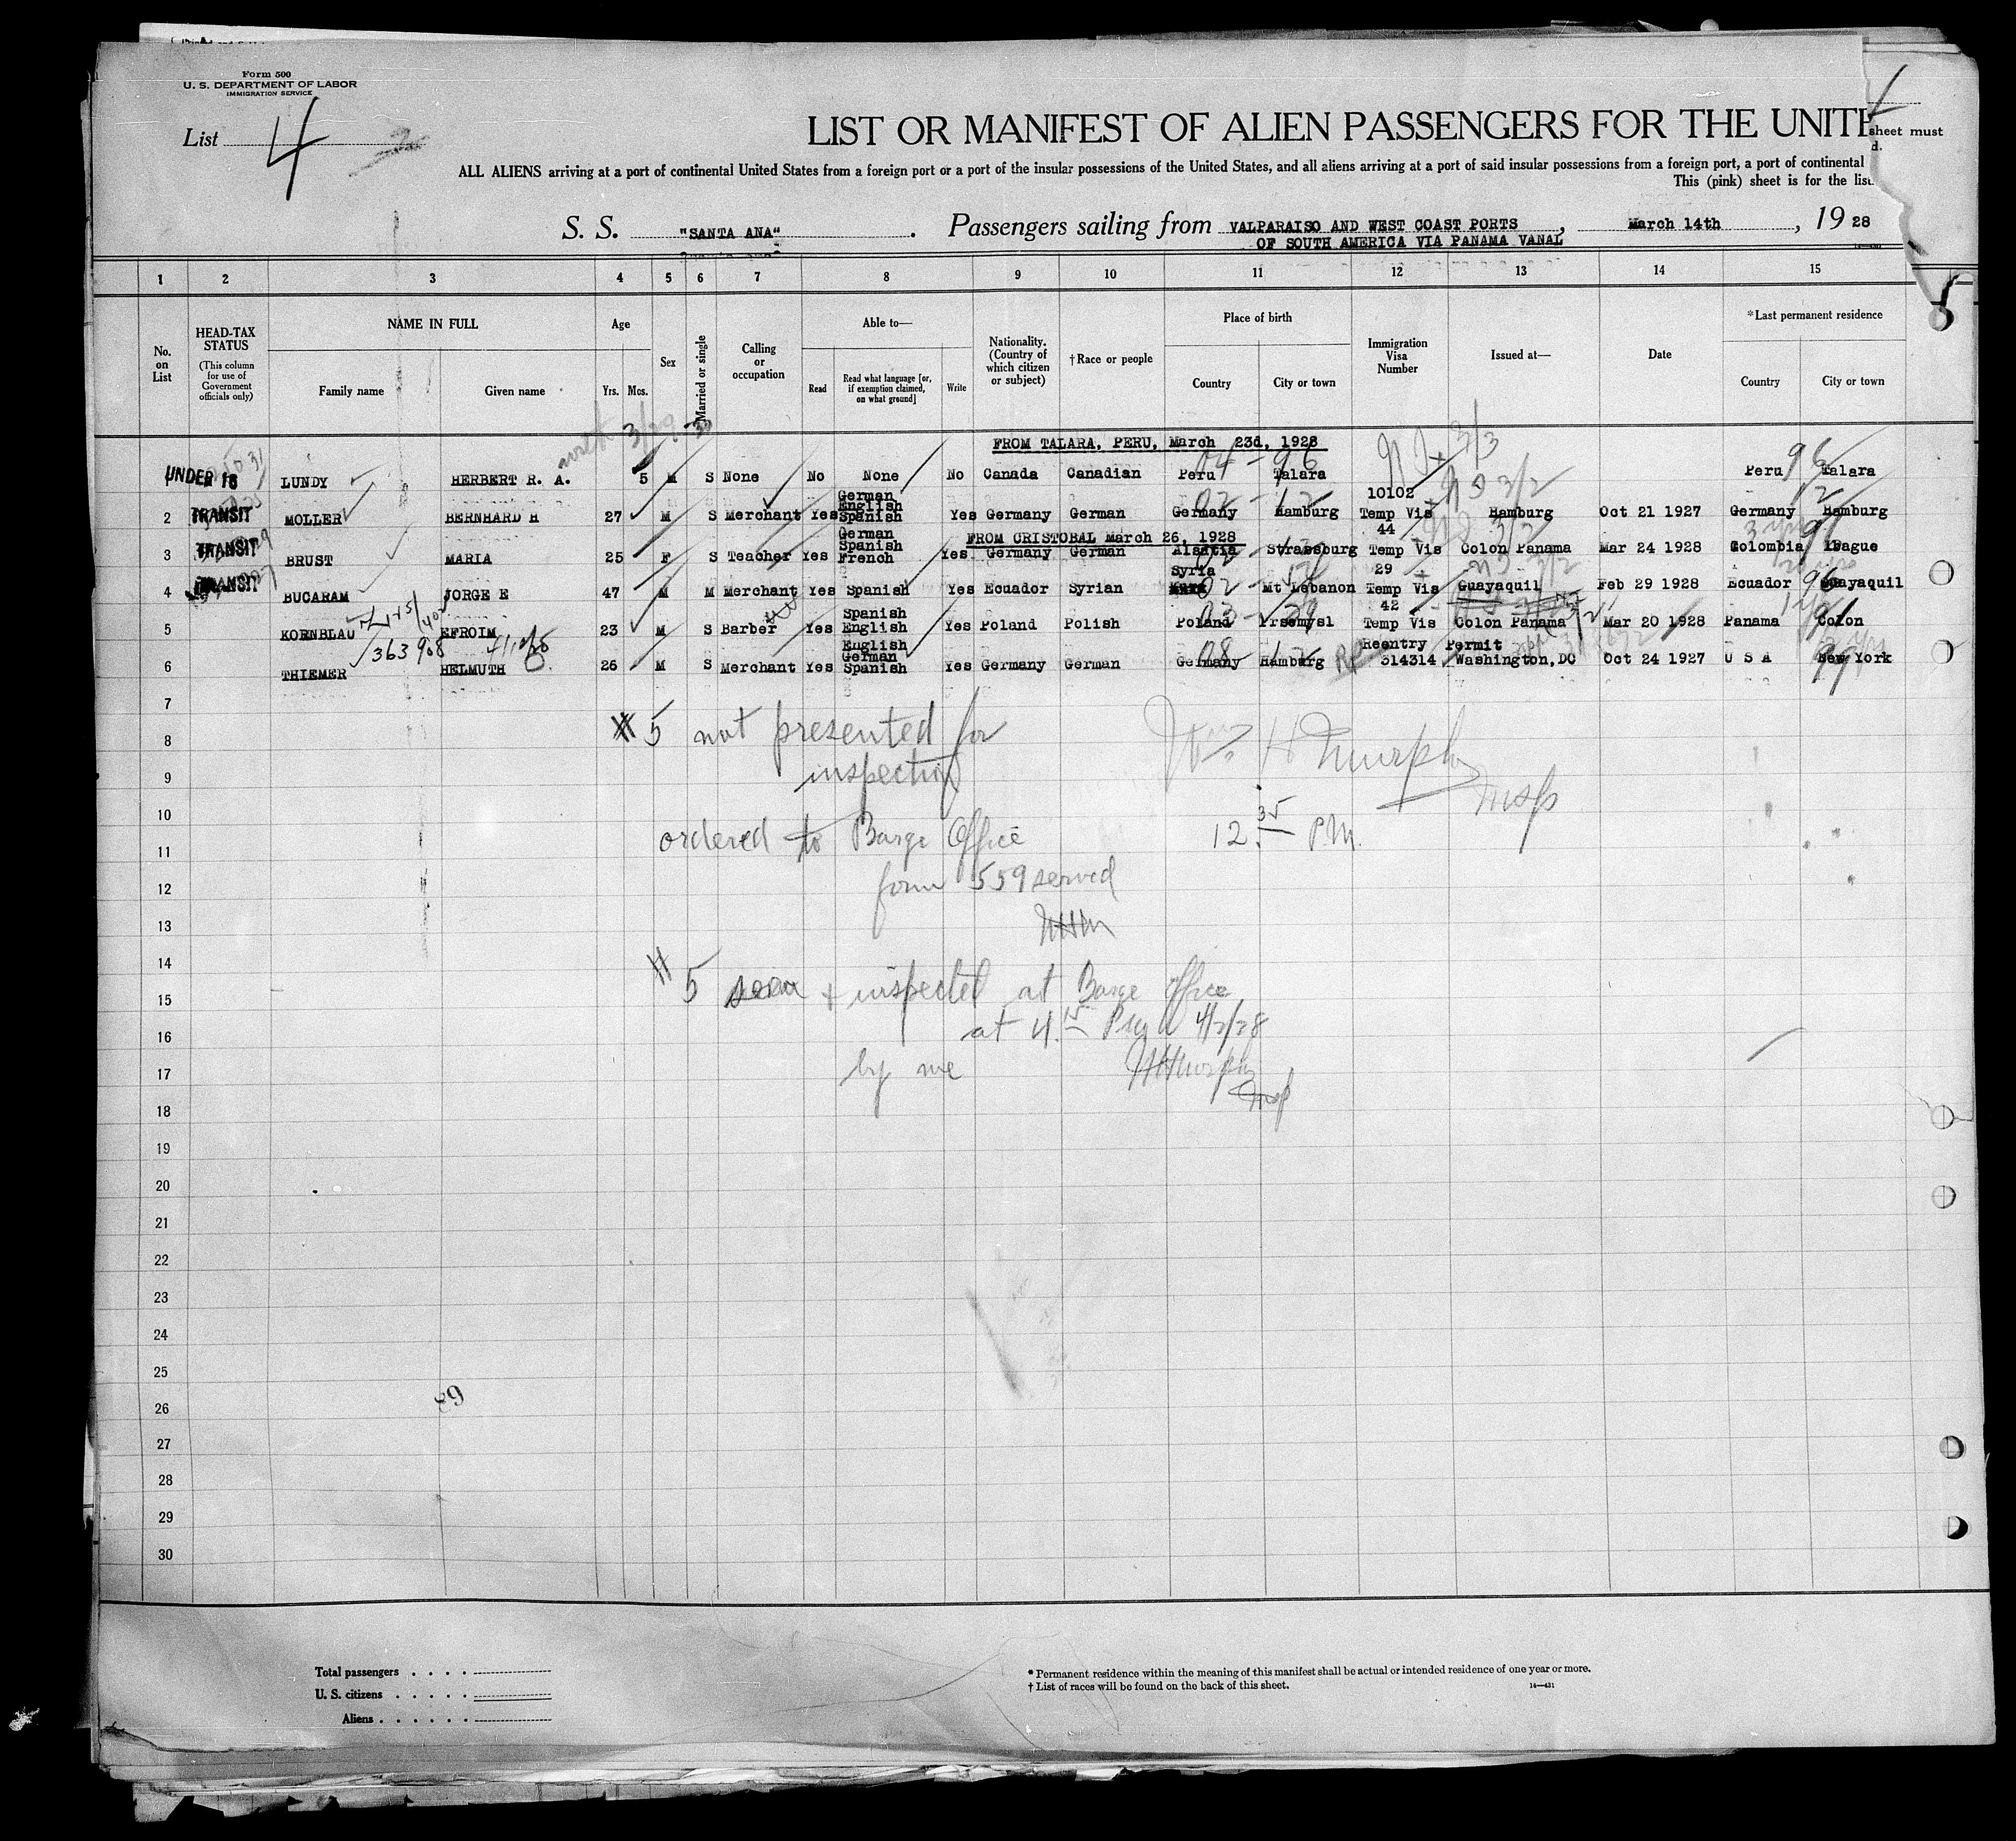 Form 500
U. S. DEPARTMENT OF LABOR
IMMIGRATION SERVICE
List 4
LIST OR MANIFEST OF ALIEN PASSENGERS FOR THE UNITE
sheet must
d.
ALL ALIENS arriving at a port of continental United States from a foreign port or a port of the insular possessions of the United States, and all aliens arriving at a port of said insular possessions from a foreign port, a port of continental
This (pink) sheet is for the list
S. S. "SANTA ANA". Passengers sailing from VALPARAISO AND WEST COAST PORTS, March 14th, 19 28
OF SOUTH AMERICA VIA PANAMA VANAL
1 2 3 4 5 6 7 8 9 10 11 12 13 14 15
No. on List
HEAD-TAX STATUS (This column for use of Government officials only)
NAME IN FULL
Family name Given name
Age
Yrs. Mos.
Sex
Married or single
Calling or occupation
Able to—
Read Read what language [or, if exemption claimed, on what ground] Write
Nationality. (Country of which citizen or subject)
† Race or people
Place of birth
Country City or town
Immigration Visa Number
Issued at—
Date
* Last permanent residence
Country City or town
3/29
FROM TALARA, PERU, March 23d, 1928
UNDER 16 LUNDY HERBERT R. A. 5 M S None No None No Canada Canadian Peru Talara Peru Talara
04 - 96
96
2 TRANSIT MOLLER BERNHARD H 27 M S Merchant Yes German English Spanish Yes Germany German Germany Hamburg 10102 Temp Vis Hamburg Oct 21 1927 Germany Hamburg
FROM CRISTOBAL March 26, 1928
3 TRANSIT BRUST MARIA 25 F S Teacher Yes German Spanish French Yes Germany German Alsatia Strassburg 44 Temp Vis Colon Panama Mar 24 1928 Colombia Ibague
4 TRANSIT BUCARAM JORGE E 47 M M Merchant Yes Spanish Yes Ecuador Syrian Syria Mt Lebanon 29 Temp Vis Guayaquil Feb 29 1928 Ecuador Guayaquil
5 KORNBLAU EFROIM 23 M S Barber Yes Spanish English Yes Poland Polish Poland Przemysl 42 Temp Vis Colon Panama Mar 20 1928 Panama Colon
363908
6 THIEMER HELMUTH 26 M S Merchant Yes English German Spanish Yes Germany German Germany Hamburg Reentry Permit 314314 Washington, DC Oct 24 1927 U S A New York
7
8 # 5 not presented for
Wm H Murphy
9 inspection
Insp
10
11 ordered to Barge Office 12.35 P.M.
12 form 559 served
13 WHM
14
15 # 5 seen & inspected at Barge Office
16 at 4.15 PM 4/2/28
17 by me WHMurphy
Insp
18
19
20
21
22
23
24
25
26
89
27
28
29
30
Total passengers . . . .
U. S. citizens . . . . .
Aliens . . . . . .
* Permanent residence within the meaning of this manifest shall be actual or intended residence of one year or more.
† List of races will be found on the back of this sheet.
14—431